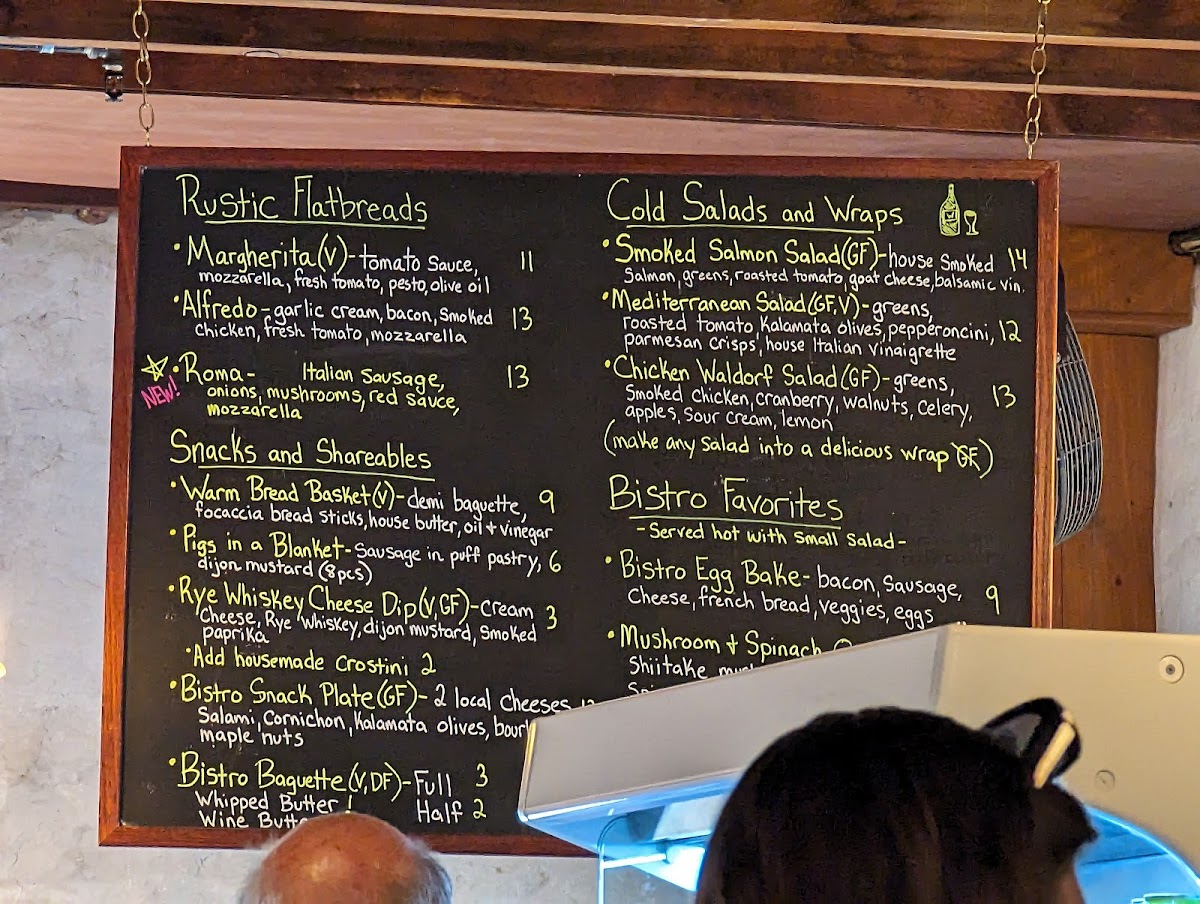 Rustic Flatbreads
• Margherita (V) - tomato sauce, 11
mozzarella, fresh tomato, pesto, olive oil
• Alfredo - garlic cream, bacon, smoked 13
chicken, fresh tomato, mozzarella
NEW! • Roma - Italian sausage, 13
onions, mushrooms, red sauce,
mozzarella
Snacks and Shareables
• Warm Bread Basket (V) - demi baguette, 9
focaccia bread sticks, house butter, oil + vinegar
• Pigs in a Blanket - Sausage in puff pastry, 6
dijon mustard (8pcs)
• Rye Whiskey Cheese Dip (V, GF) - cream 3
Cheese, Rye Whiskey, dijon mustard, smoked
paprika
• Add housemade crostini 2
• Bistro Snack Plate (GF) - 2 local cheeses
Salami, Cornichon, Kalamata olives,
maple nuts
• Bistro Baguette (V, DF) - Full 3
Whipped Butter 1 Half 2
Wine
Cold Salads and Wraps
• Smoked Salmon Salad (GF) - house smoked 14
Salmon, greens, roasted tomato, goat cheese, balsamic vin.
• Mediterranean Salad (GF, V) - greens,
roasted tomato, Kalamata olives, pepperoncini, 12
parmesan crisps, house Italian vinaigrette
• Chicken Waldorf Salad (GF) - greens,
Smoked chicken, cranberry, walnuts, celery, 13
apples, sour cream, lemon
(make any salad into a delicious wrap GF)
Bistro Favorites
- Served hot with small salad -
• Bistro Egg Bake - bacon, sausage,
Cheese, french bread, veggies, eggs 9
• Mushroom + Spinach
Shiitake